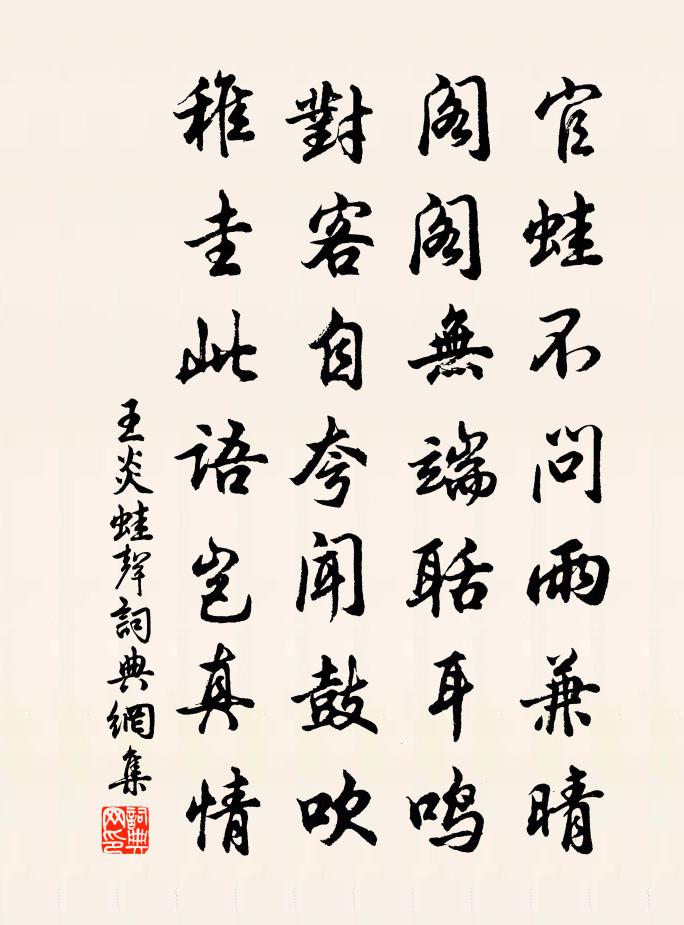 官蛙不問雨兼晴
閣閣無端聒耳鳴
對客自夸聞鼓吹
稚圭此語豈真情
王炎蛙聲詞典網集
詞典網印